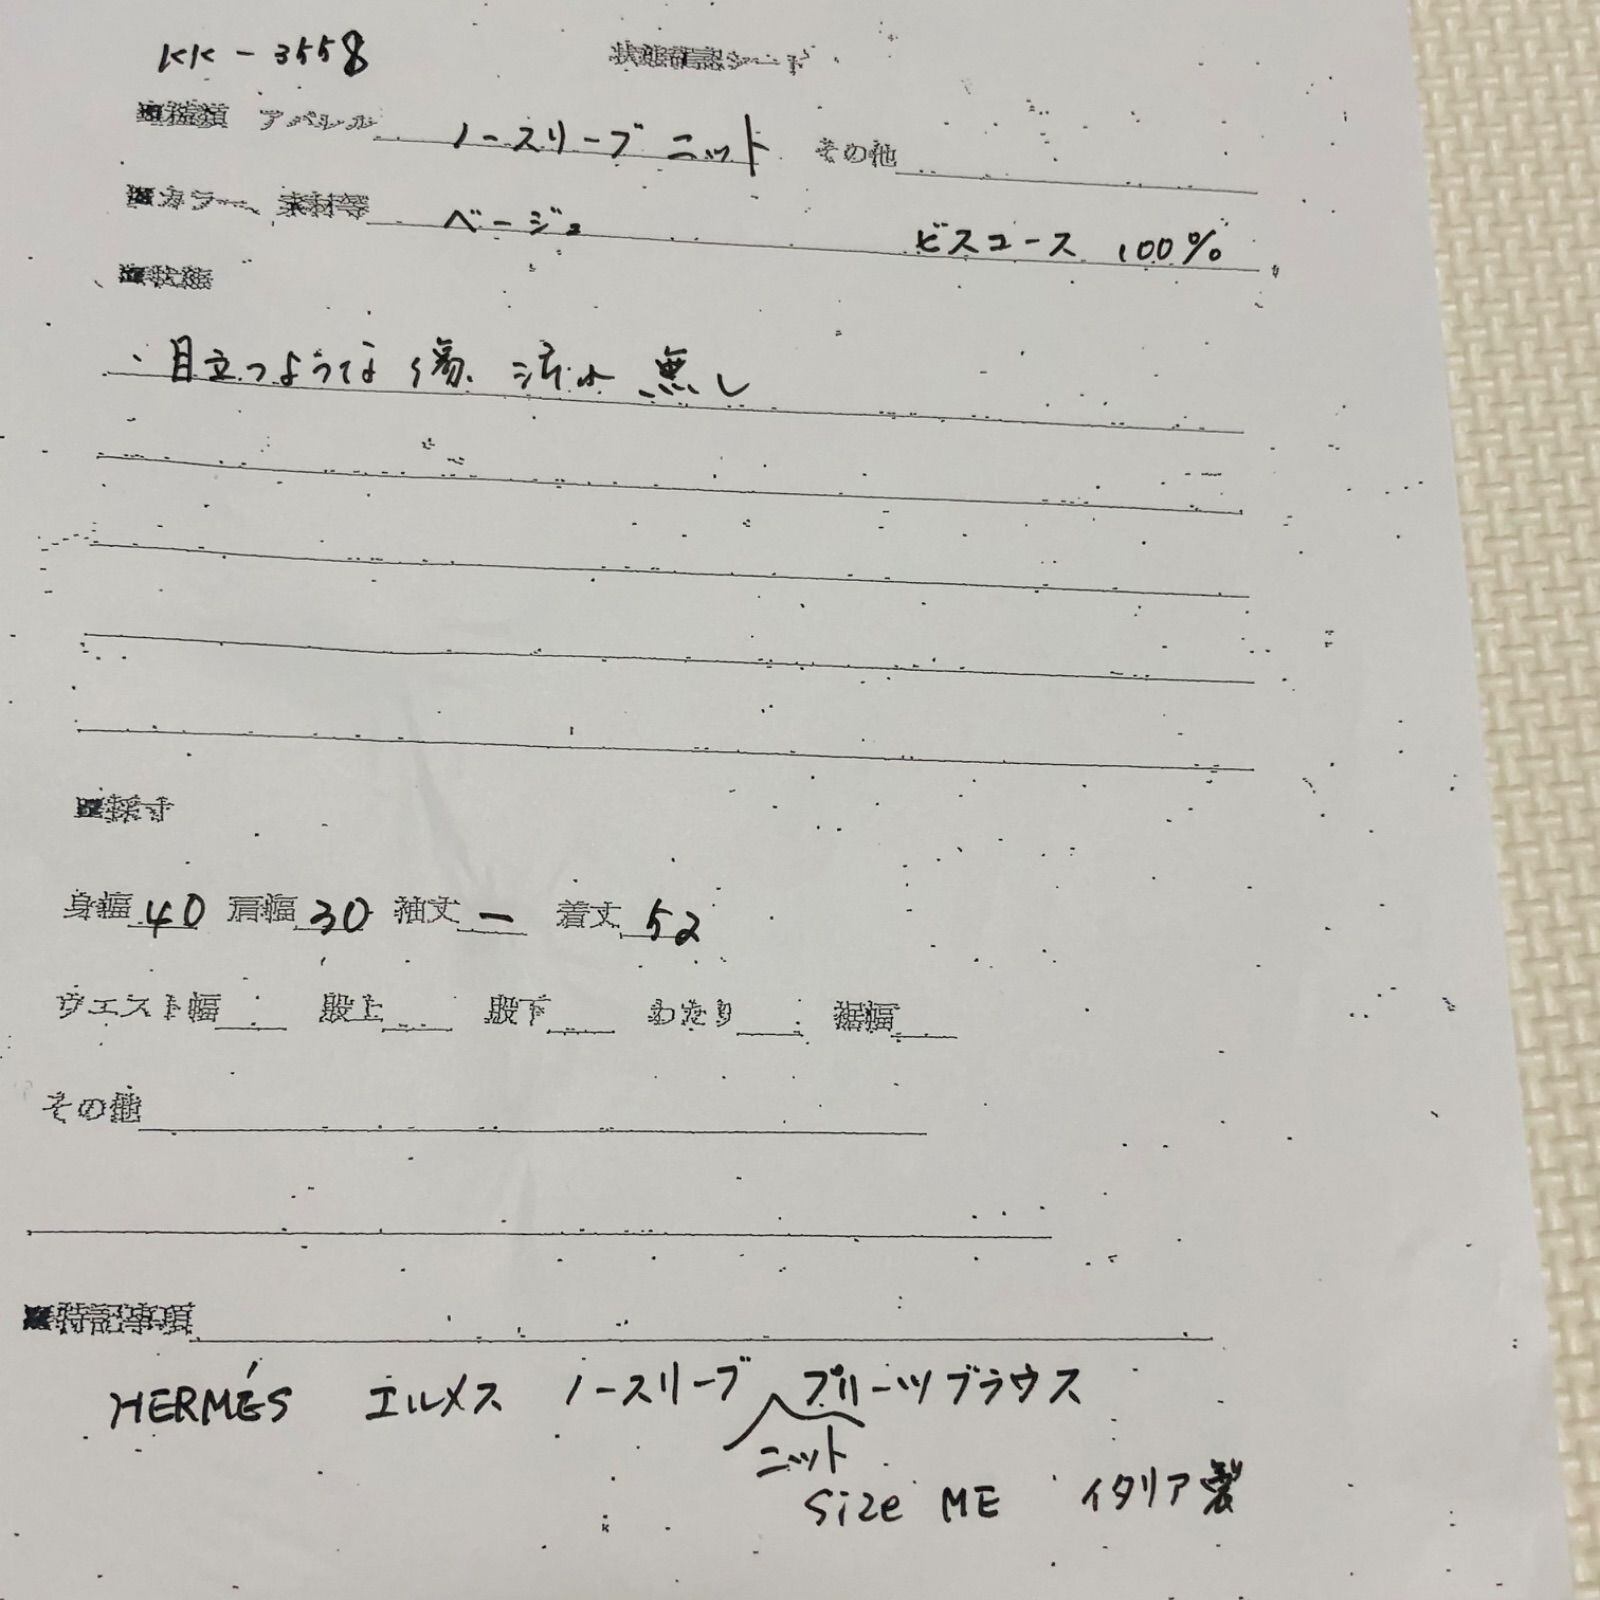 KK-3558 状態確認シート
■種類 アパレル ノースリーブ ニット その他
■カラー、素材等 ベージュ ビスコース 100%
■状態
・目立つような傷、汚れ 無し
■採寸
身幅 40 肩幅 30 袖丈 ー 着丈 52
ウエスト幅 股上 股下 わたり 裾幅
その他
■特記事項
HERMÉS エルメス ノースリーブ プリーツブラウス
ニット
Size ME イタリア製